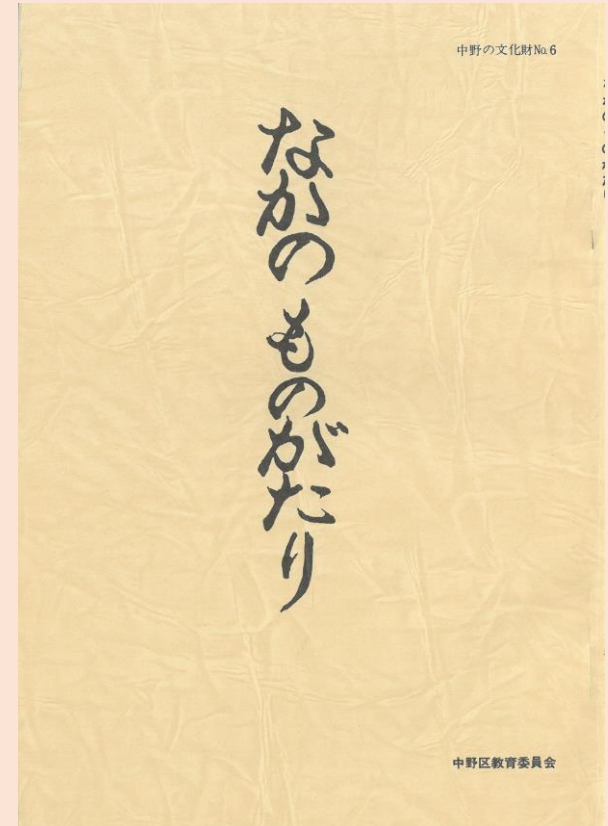 中野の文化財No.6
なかの ものがたり
中野区教育委員会